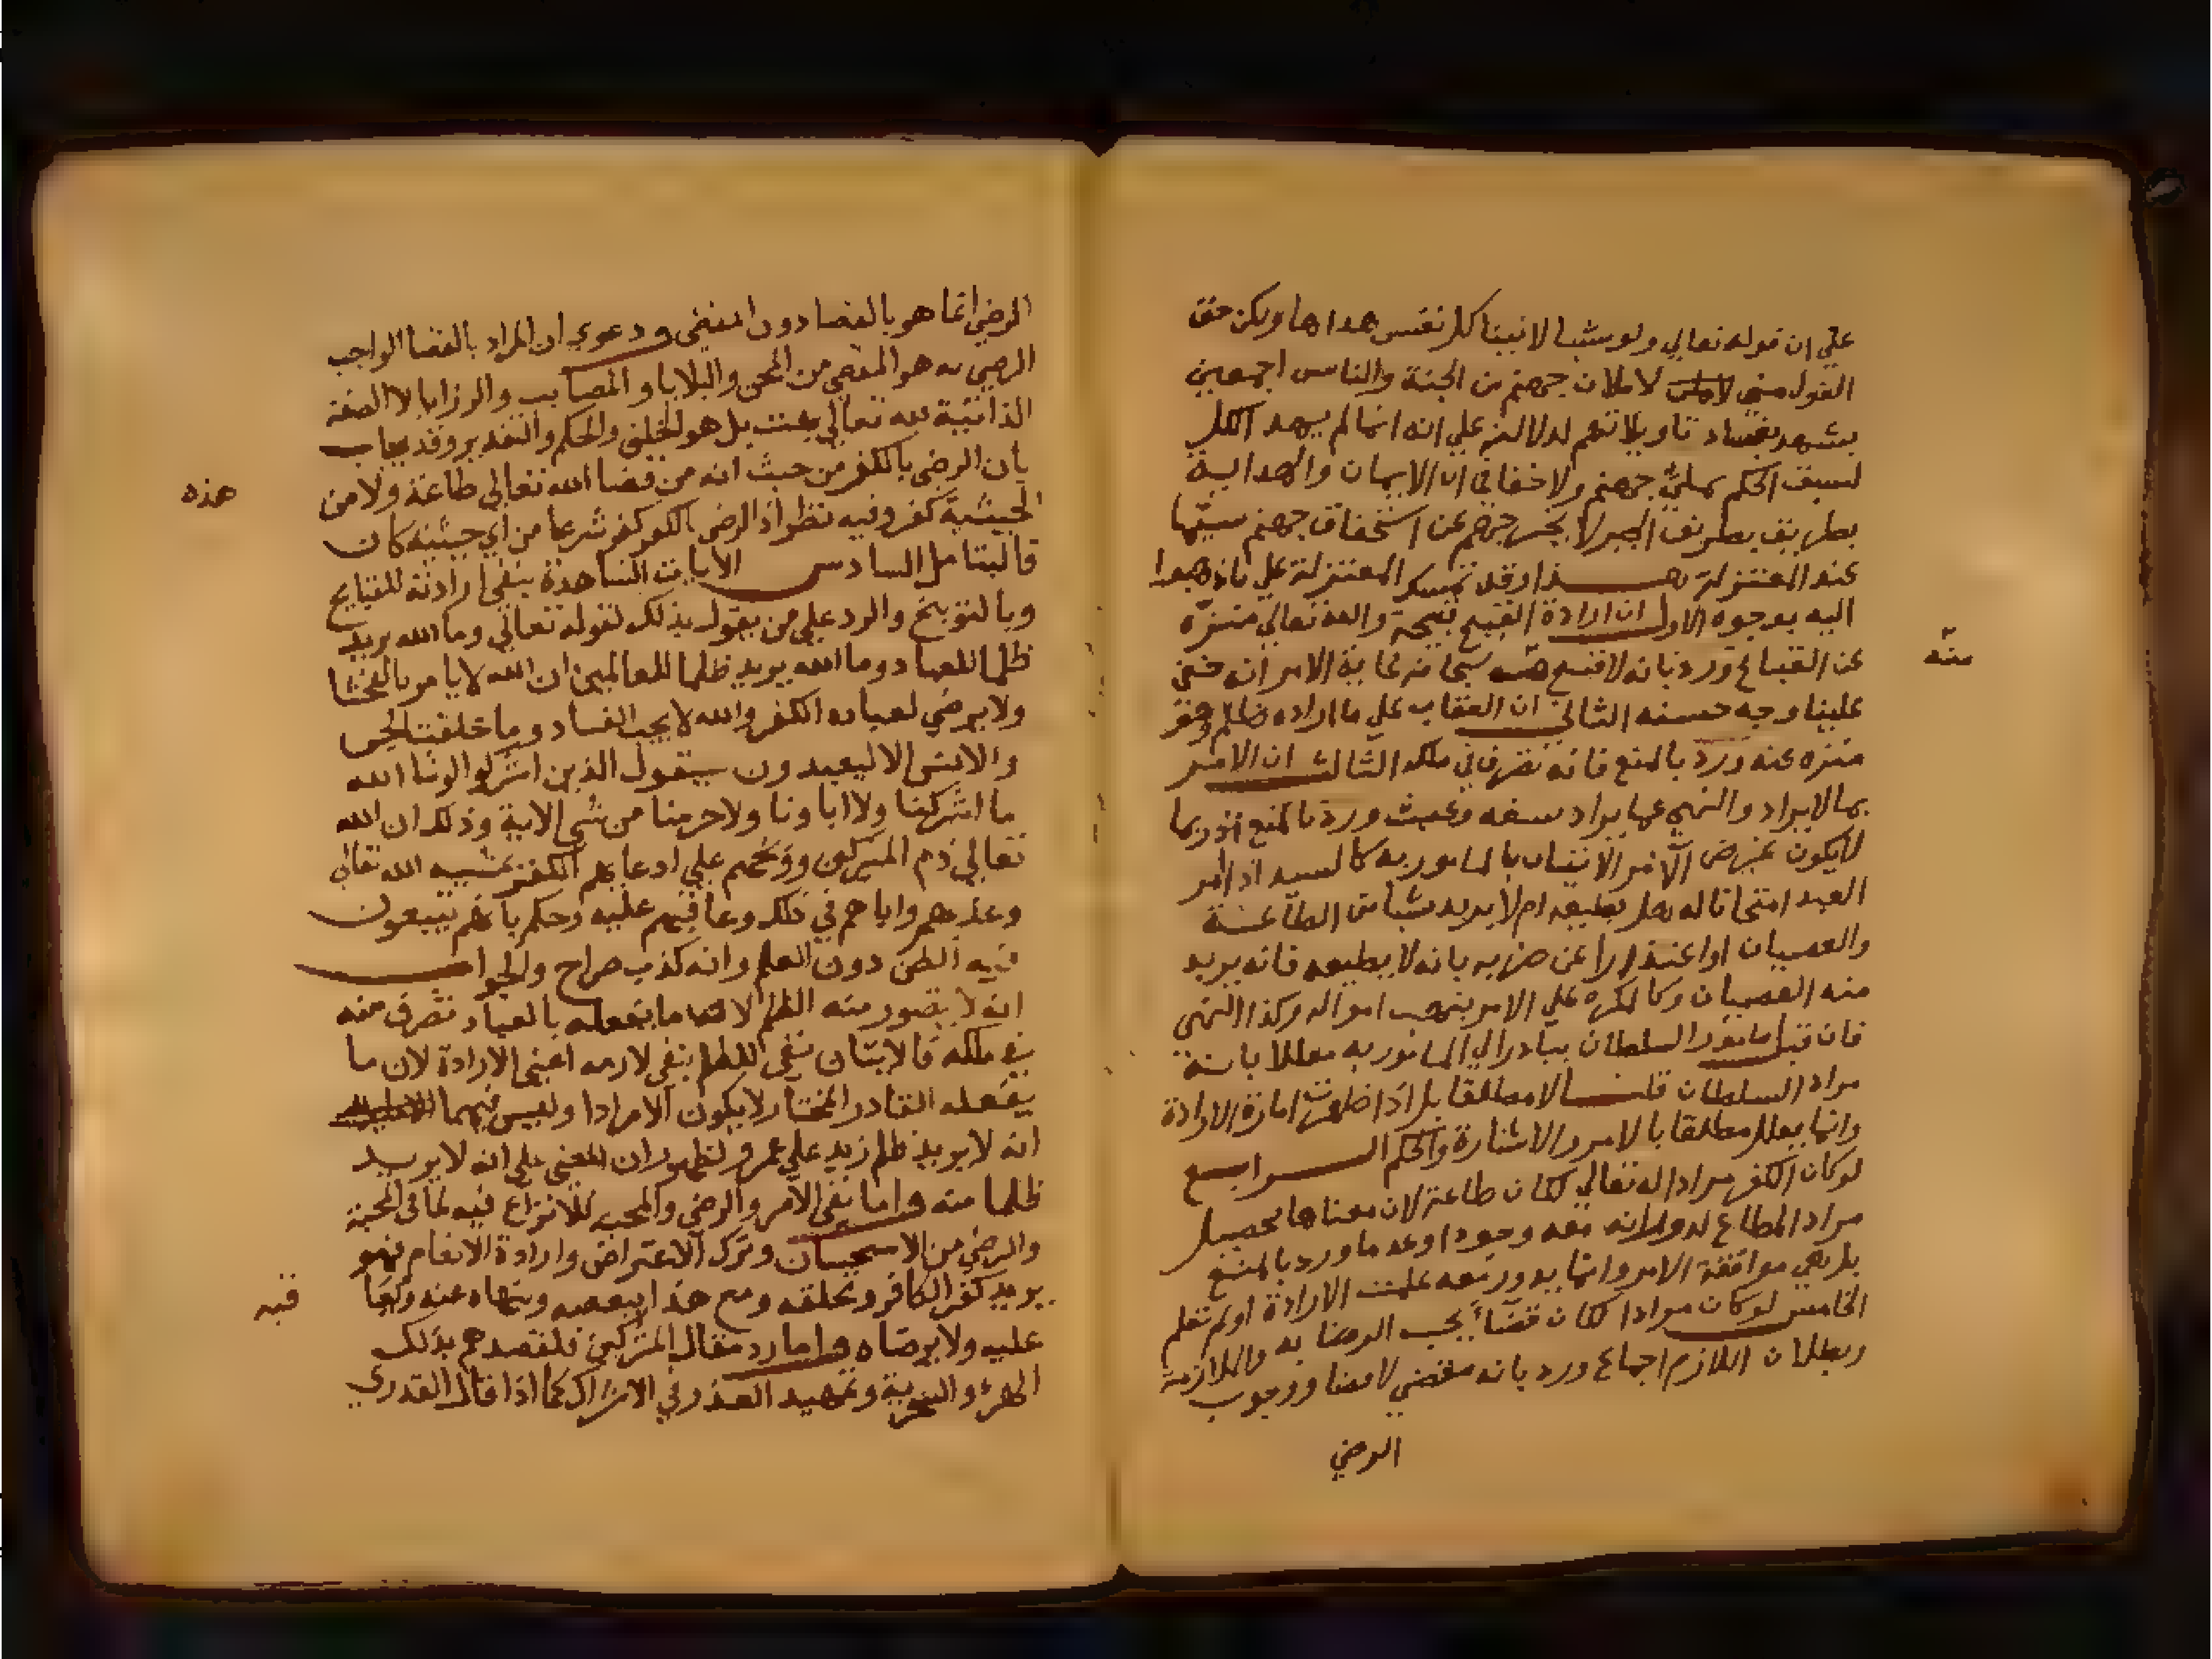 علي ان قوله تعالي ولو شينا لاتينا كل نفس هداها ولكن حق
القول مني لاملان جهنم من الجنة والناس اجمعين
يشهد بفساد تاويلاتهم لدلالته علي انه انما لم يهد الكل
لسبق الحكم بملئ جهنم ولا خفا في ان الايمان والهداية
بطريق الجبر لا يخرجهم عن استحقاق جهنم سيما
عند المعتزلة هذا وقد تمسك المعتزلة علي ما ذهبوا
اليه بوجوه الاول ان ارادة القبيح قبيحة والله تعالي منزه
منه
عن القبائح ورد بانه لا قبيح منه سبحانه غاية الامر انه خفي
علينا وجه حسنه الثاني ان العقاب علي ما اراده ظلم وهو
منزه عنه ورد بالمنع فانه تصرف في ملكه الثالث ان الامر
بما لا يراد والنهي عما يراد سفه وعبث ورد بالمنع اذ ربما
لا يكون غرض الآمر الاتيان بالمامور به كالسيد اذا امر
العبد امتحانا له هل يطيعه ام لا يريد شيا من الطاعة
والعصيان او اعتذارا عن ضربه بانه لا يطيعه فانه يريد
منه العصيان وكالمكره علي الامر بنهب امواله وكذا النهي
فان قيل مامور السلطان يبادر الي المامور به معللا بانه
مراد السلطان قلنا لا مطلقا بل اذا ظهرت امارة الارادة
وانما يعلل مطلقا بالامر والاشارة والحكم الرابع
لو كان الكفر مراد الله تعالي لكان طاعة لان معناها تحصيل
مراد المطاع لدورانه معه وجودا وعدما ورد بالمنع
بل هي موافقة الامر وانما يدور معه علمت الارادة او لم تعلم
الخامس لو كان مرادا لكان قضاء يجب الرضا به والملازمة
وبطلان اللازم اجماع ورد بانه مقضي لا قضا ووجوب
الرضي
الرضي انما هو بالقضا دون المقضي ودعوي ان المراد بالقضا الواجب
الرضي به هو المقضي من المحن والبلايا والمصايب والرزايا لا الصفة
الذاتية لله تعالي بل هو الخلق والحكم والتقدير وقد يجاب
بان الرضي بالكفر من حيث انه من قضا الله تعالي طاعة ولا من
هذه
الحيثية كفر وفيه نظر اذ الرضي بالكفر كفر شرعا من اي حيثية كان
فاليتامل السادس الايات الشاهدة بنفي ارادته للقبايح
وبالتوبيخ والرد علي من يقول بذلك لقوله تعالي وما الله يريد
ظلما للعباد وما الله يريد ظلما للعالمين ان الله لا يامر بالفحشا
ولا يرضي لعباده الكفر والله لا يحب الفساد وما خلقت الجن
والانس الا ليعبدون سيقول الذين اشركوا لو شا الله
ما اشركنا ولا اباونا ولا حرمنا من شي الاية وذلك ان الله
تعالي ذم المشركين ووبخهم علي ادعايهم الكفر بمشيه الله تعالي
وعذبهم واباهم في ذلك وعاقبهم عليه وحكم بانهم يتبعون
فيه الظن دون العلم وانه كذب صراح والجواب
انه لا يتصور منه الظلم لان ما يفعله بالعباد تصرف منه
في ملكه فالايتان نفي للظلم بنفي لازمه اعني الارادة لان ما
يفعله القادر المختار لا يكون الا مرادا وليس فيهما
انه لا يريد ظلم زيد علي عمرو لظهور ان المعني علي انه لا يريد
ظلما منه واما نفي الامر والرضي والمحبه فلا نزاع فيه لما في المحبة
والرضي من الاستحسان وترك الاعتراض وارادة الانعام فهو
يريد كفر الكافر وخلقه ومع هذا يبغضه وينهاه عنه
فيه
عليه ولا يرضاه واما رد مقال المشركين فلقصدهم بذلك
الهزء والسخرية وتمهيد العذر في الاشراك كما اذا قال القدري